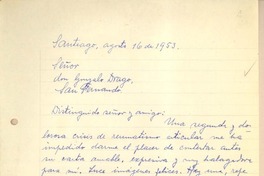 Santiago, agosto 16 de 1953.
Señor
don Gonzalo Drago,
San Fernando.
Distinguido señor y amigo:
Una segunda y do-
lorosa crisis de reumatismo articular me ha
impedido darme el placer de contestar antes
su carta amable, expresiva y muy halagadora
para mí. Luce imágenes felices. Hay una,